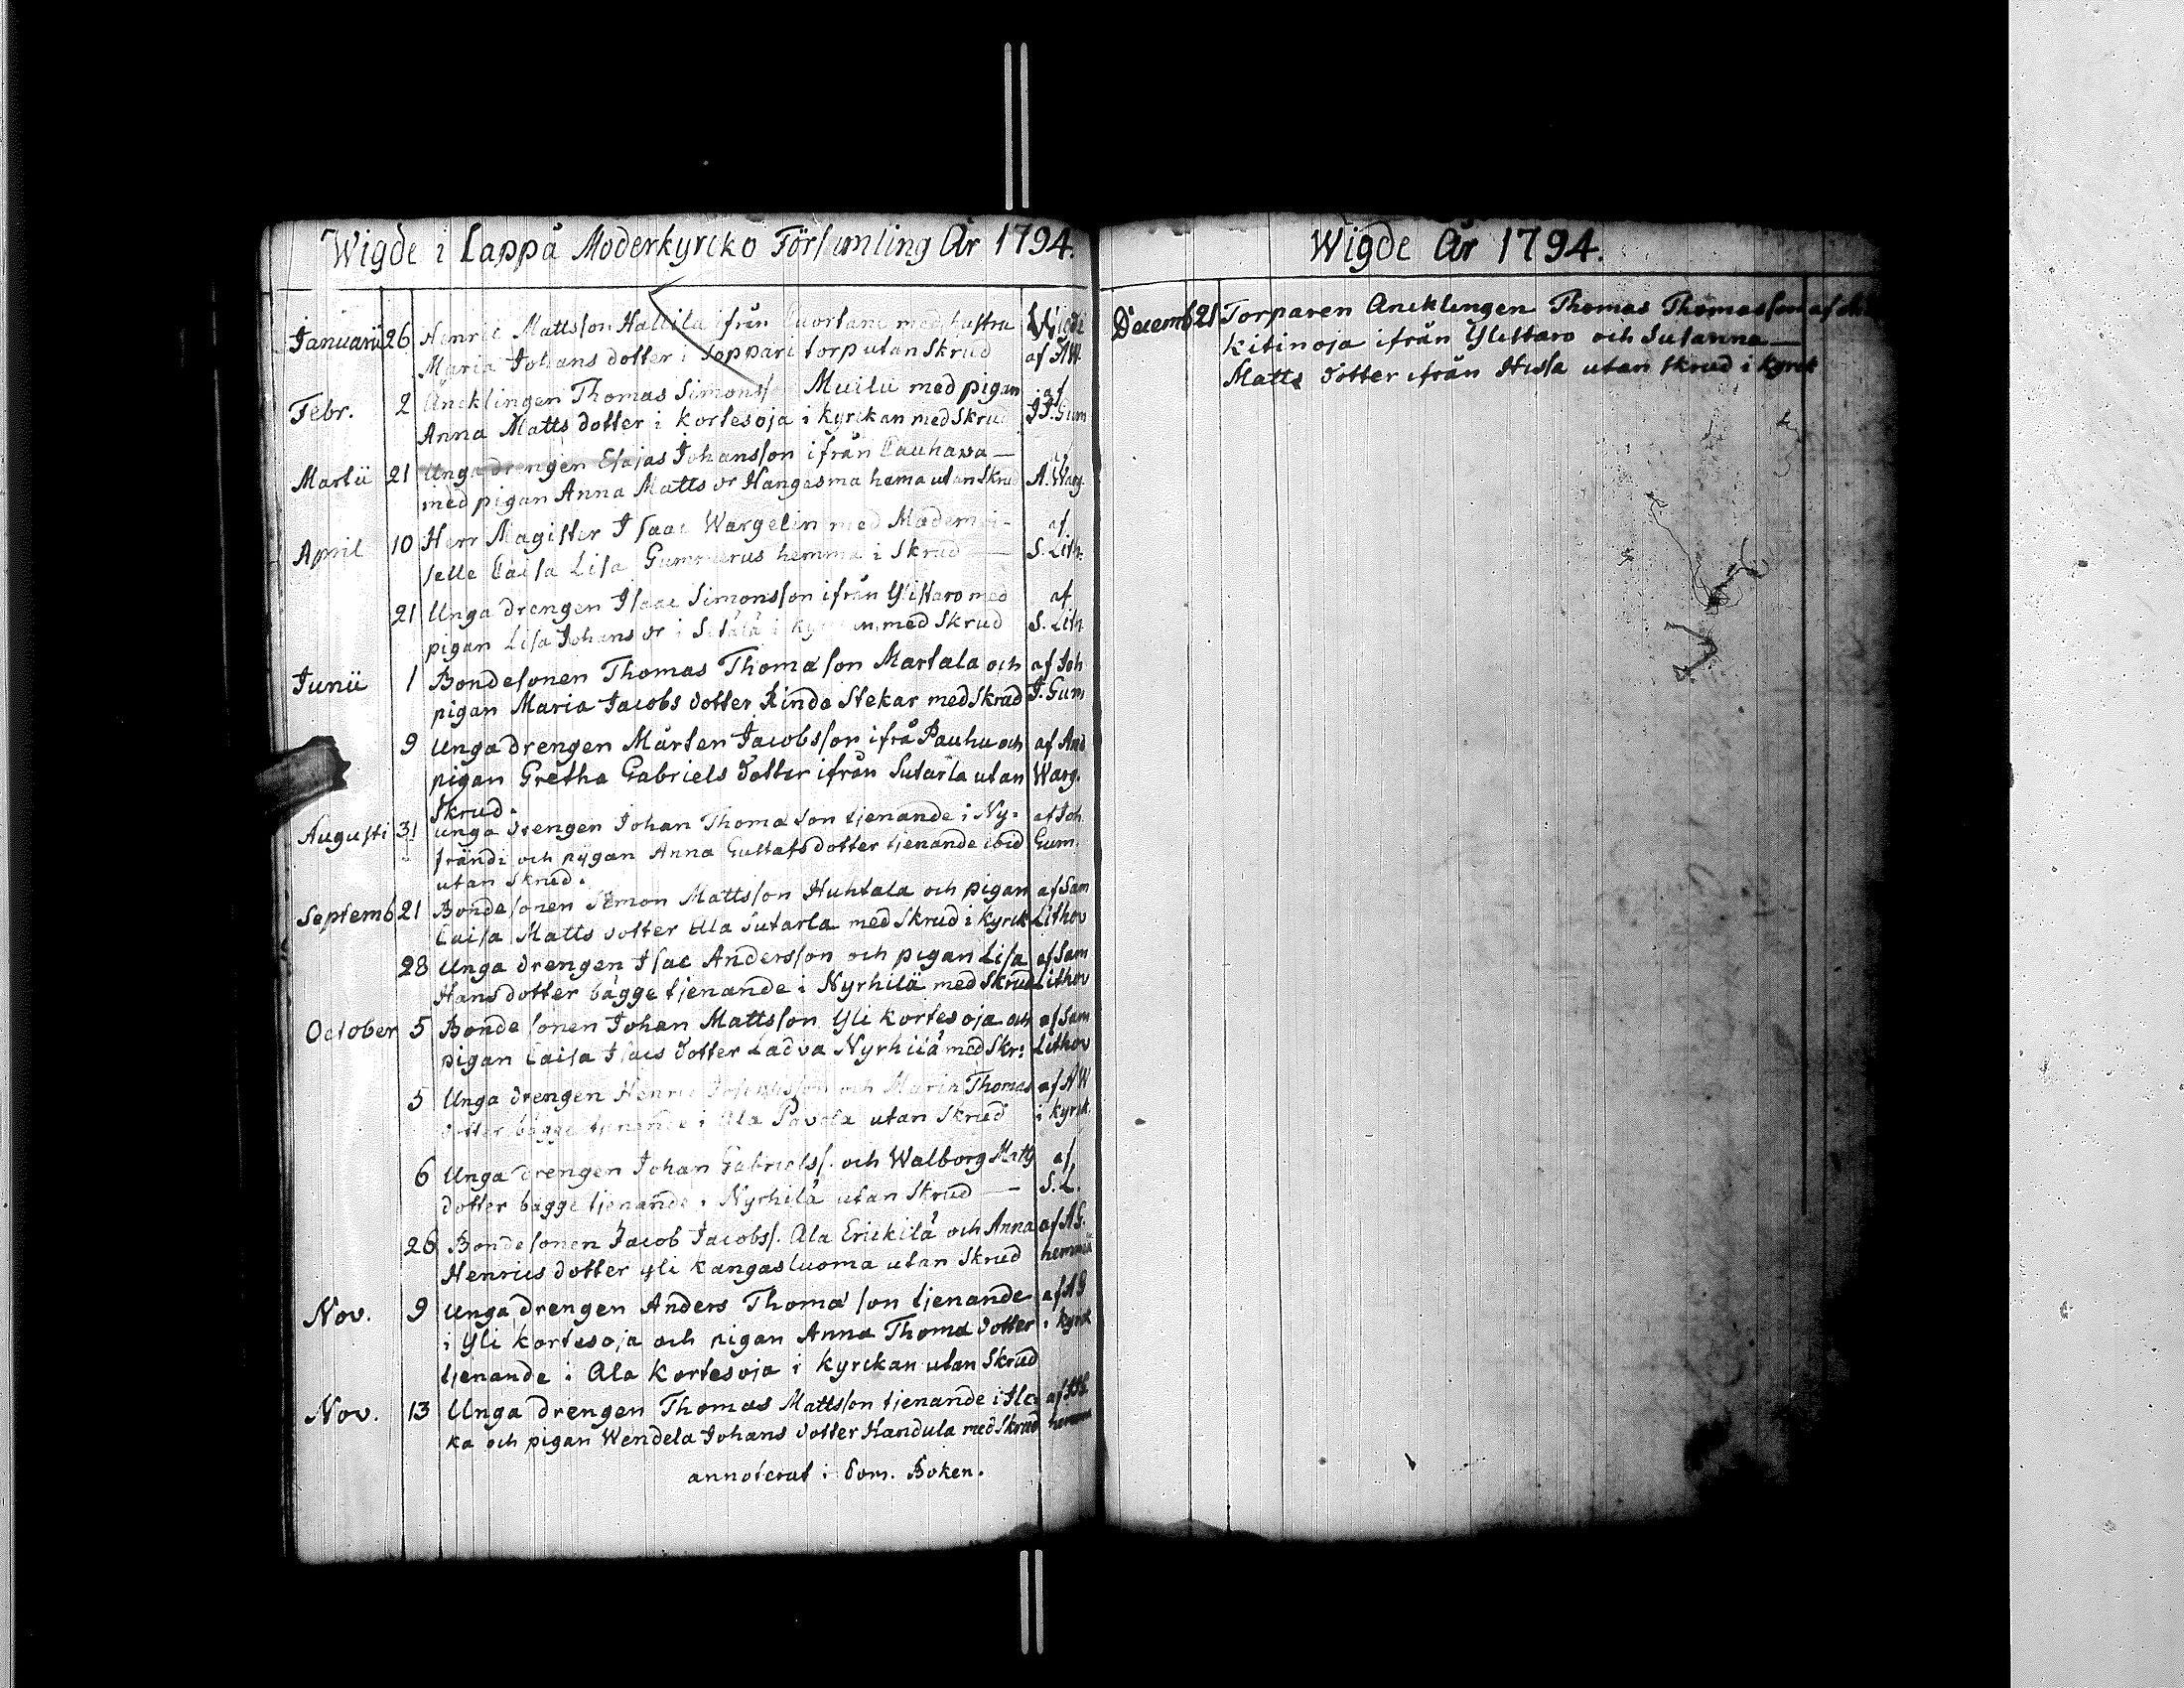 Wigde i Lappå Moderkyrcko Församling År 1794.
Januarii 26 Henric Mattsson Hallila ifrån Cuortane med hustru Wigde
Maria Johans dotter i Seppäri torp utan Skrud af AW.
Febr. 2 Ancklingen Thomas Simonsson Muilu med pigan af
Anna Matts dotter i Kortesoja i Kyrckan med Skrud J.J. Gum
Martii 21 Unga drengen Esaias Johansson ifrån Cauhava —
med pigan Anna Matts dr Hangasma hema utan Skrud A. Warg.
April 10 Herr Magister Isaac Wargelin med Mademoi- af
selle Caisa Lisa Gummerus hemma i Skrud — S. Lith.
21 Unga drengen Isaac Simonsson ifrån Ylistaro med af
pigan Lisa Johans dr i Sutala i Kyrckan med Skrud S. Lith
Junii 1 Bondesonen Thomas Thomasson Martala och af Joh
pigan Maria Jacobs dotter Rinda Stekar med Skrud J. Gum
9 Unga drengen Mårten Jacobsson ifrå Pauhu och af And
pigan Gretha Gabriels dotter ifrån Sutarla utan Warg.
Skrud.
Augusti 31 Unga drengen Johan Thomasson tjenande i Ny- af Joh.
frändi och pigan Anna Gustafs dotter tjenande ibid Gum.
utan Skrud.
Septemb 21 Bondesonen Simon Mattsson Huhtala och pigan af Sam
Caisa Matts dotter Ala Sutarla med Skrud i Kyrck Lithov
28 Unga drengen Isac Andersson och pigan Lisa af Sam
Hans dotter bägge tjenande i Nyrhilä med Skrud Lithov
October 5 Bondesonen Johan Mattsson Yli Kortesoja och af Sam
pigan Caisa Isacs dotter Ladva Nyrhilä med Skr: Lithov
5 Unga drengen Henric Josephsson och Maria Thomas af AW
dotter bägge tjenande i Ala Pavola utan Skrud i Kyrck.
6 Unga drengen Johan Gabrielss. och Walborg Matts af
dotter bägge tjenande i Nyrhilä utan Skrud — S. L.
26 Bondesonen Jacob Jacobss. Ala Erickilä och Anna af AG.
Henrics dotter Yli Kangasluoma utan Skrud hemma
Nov. 9 Unga drengen Anders Thomasson tjenande af AG
i Yli Kortesoja och pigan Anna Thomas dotter i Kyrck
tjenande i Ala Kortesoja i Kyrckan utan Skrud
Nov. 13 Unga drengen Thomas Mattsson tjenande i Ilc- af
ka och pigan Wendela Johans dotter Handula med Skrud hemma
annoterat i Dom. Boken.
Wigde År 1794.
Decemb 21 Torparen Ancklingen Thomas Thomasson af
Kitinoja ifrån Ylistaro och Susanna —
Matts dotter ifrån Hissa utan Skrud i Kyrck